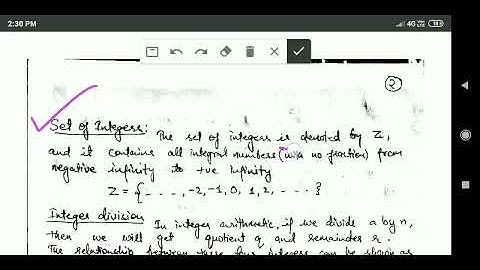 2:30 PM
4G
2
Set of Integers: The set of integers is denoted by Z,
and it contains all integral numbers (with no fraction) from
negative infinity to +ve infinity
Z = { . . . . , -2, -1, 0, 1, 2, . . . . }
Integer division In integer arithmetic, if we divide a by n,
then we will get quotient q and remainder r.
The relationship between these four integers can be shown as